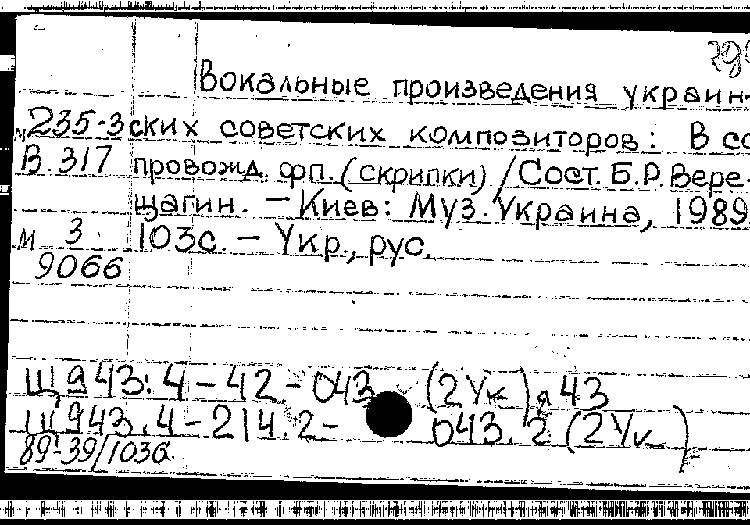 Вокальные произведения украин-
м235-3 ских советских композиторов: В со
В.317 провожд. фп. (скрипки) / Сост. Б.Р. Вере-
щагин. — Киев: Муз. Украина, 1989
м 3. 103с. — Укр., рус.
9066
Щ943.4-42-043 (2Ук)я43
Щ943.4-214.2- 043.2(2Ук)
89-39/1036